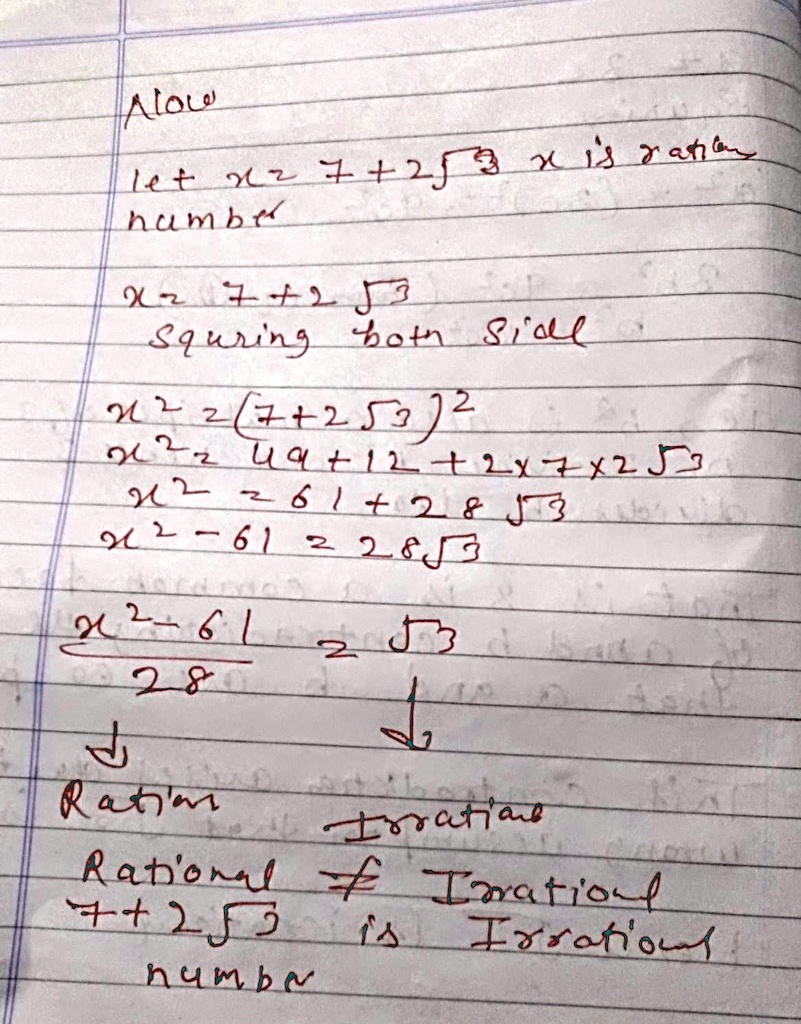 Now
let x = 7 + 2√3 x is ration
number
x = 7 + 2√3
Squring both side
x² = (7 + 2√3)²
x² = 49 + 12 + 2×7×2√3
x² = 61 + 28√3
x² - 61 = 28√3
x² - 61 / 28 = √3
↓ ↓
Ration Irrational
Rational ≠ Irrational
7 + 2√3 is Irrational
number